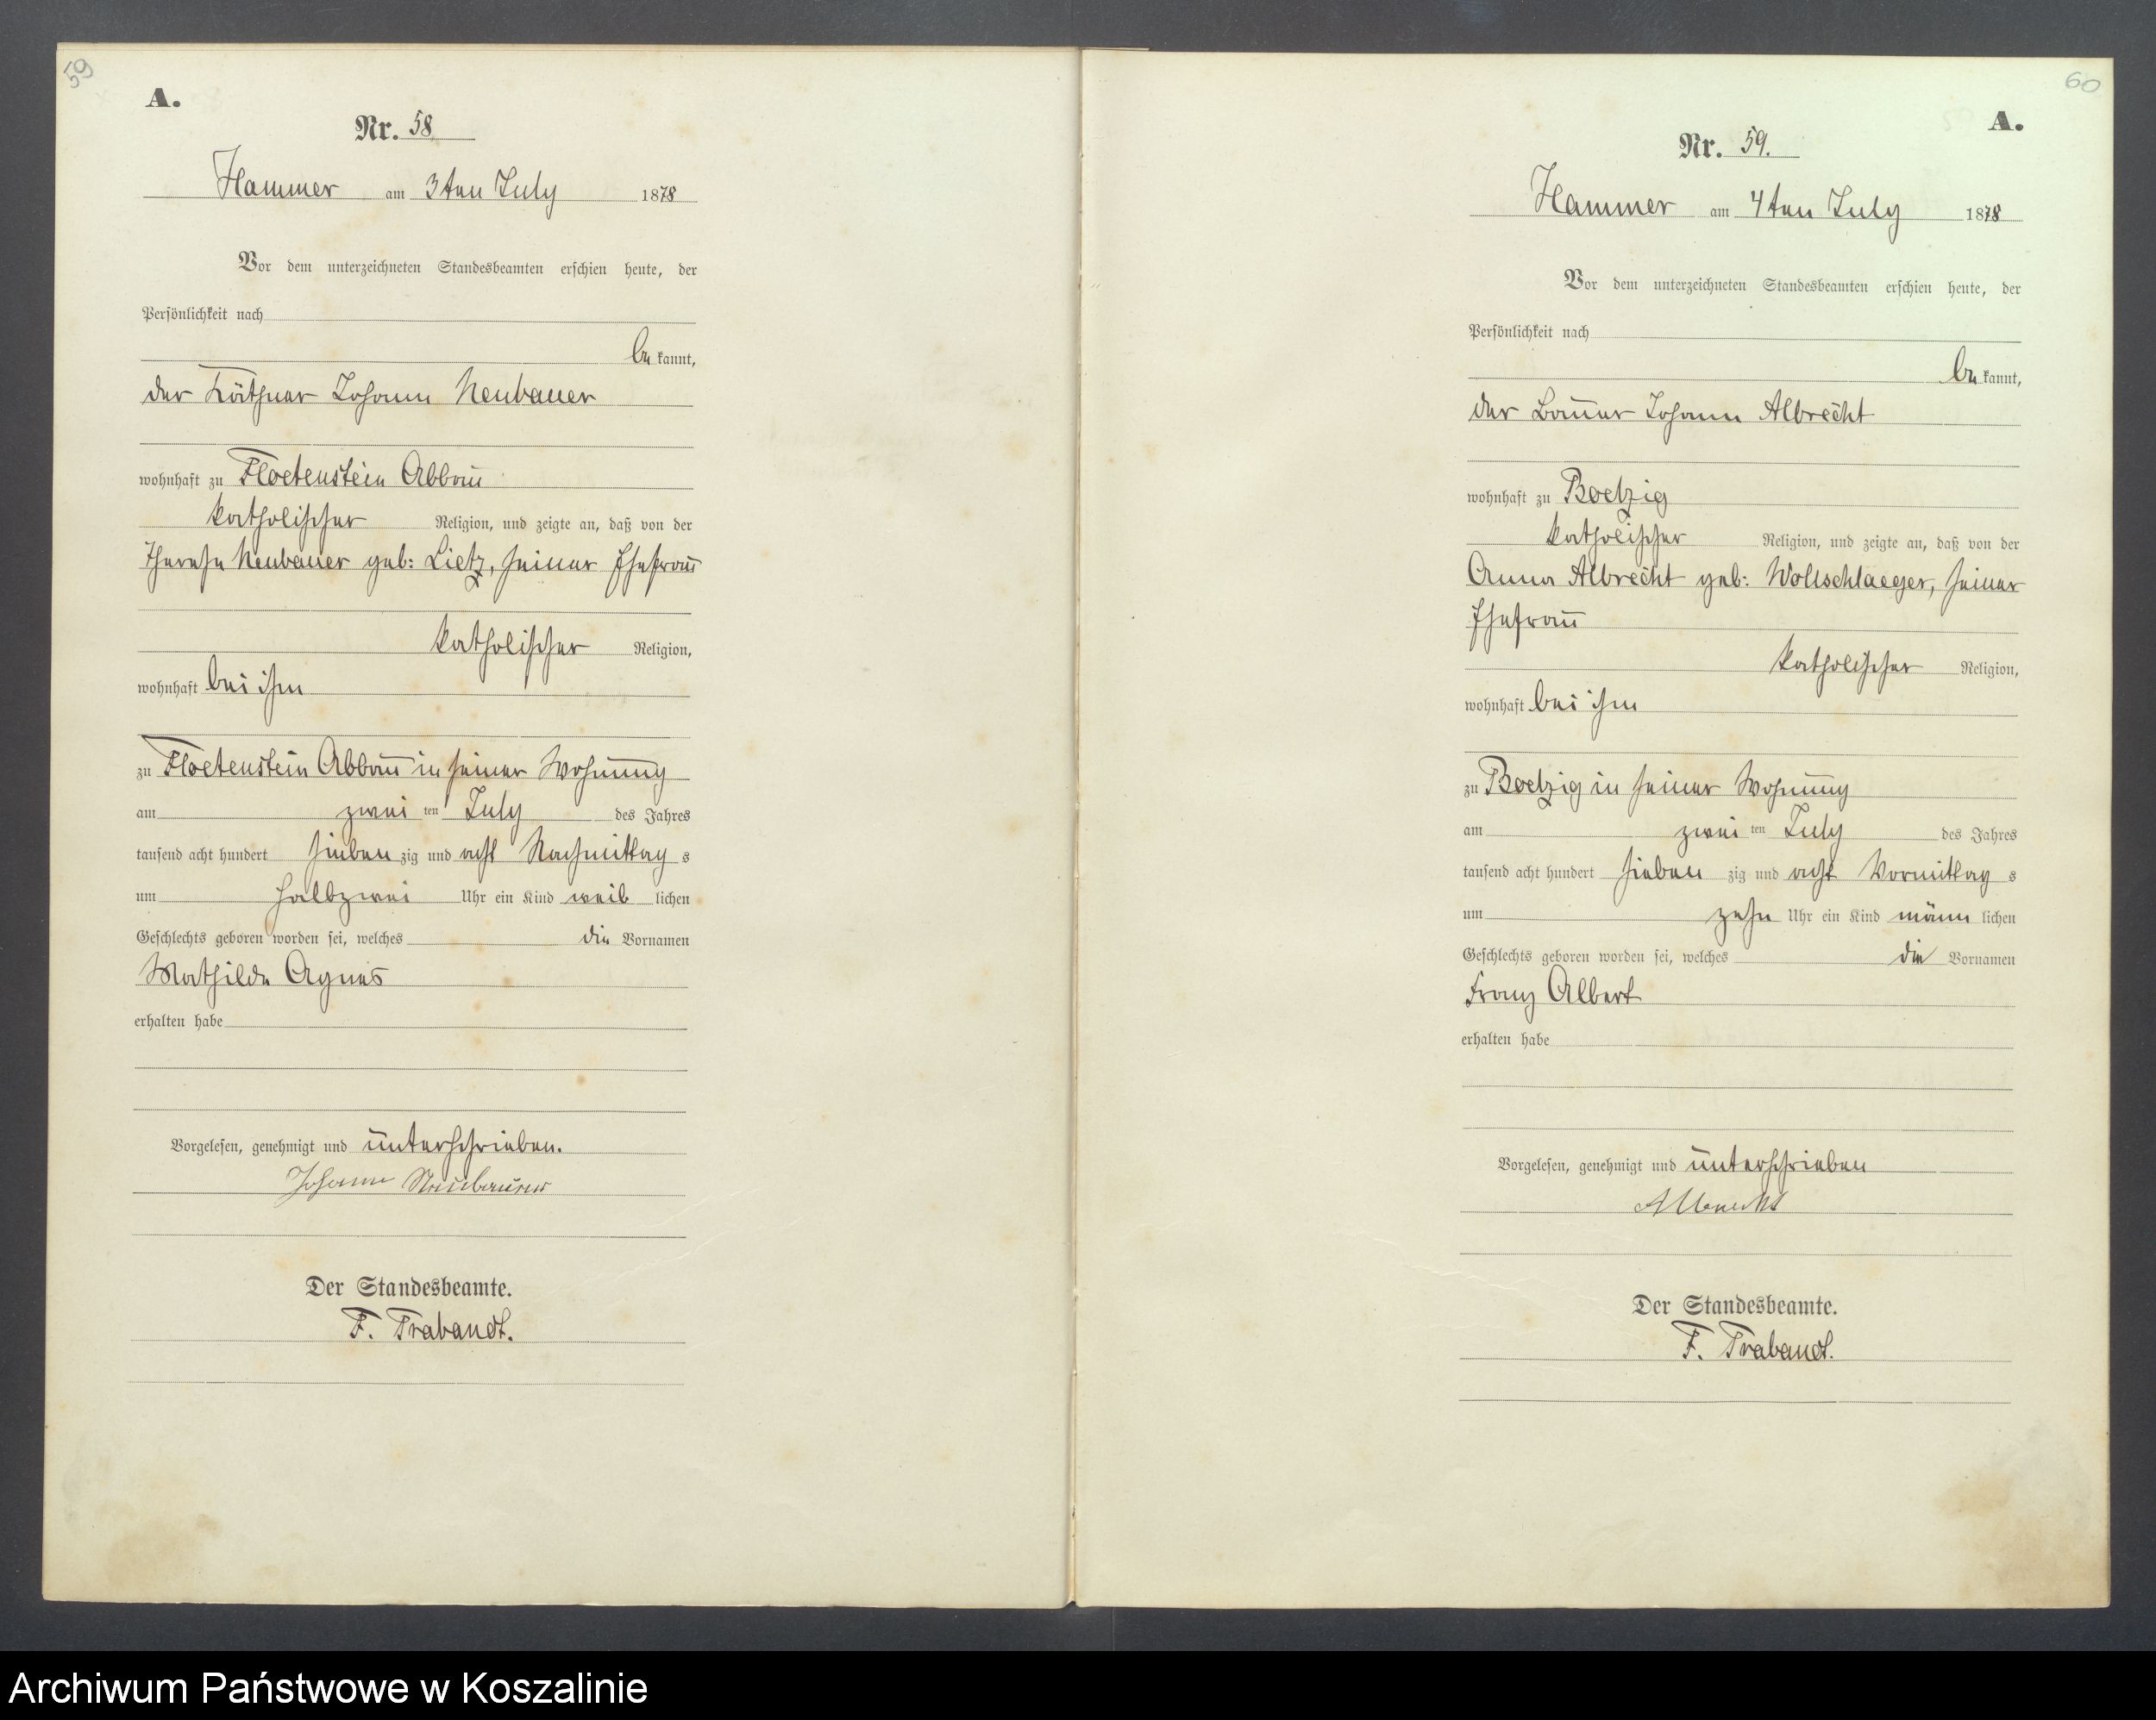 59
A.
Nr. 58
Hammer am 3ten July 1878
Vor dem unterzeichneten Standesbeamten erschien heute, der
Persönlichkeit nach
be kannt,
der Käthner Johann Neubauer
wohnhaft zu Floetenstein Abbau
katholischer Religion, und zeigte an, daß von der
Therese Neubauer geb: Lietz, seiner Ehefrau
katholischer Religion,
wohnhaft bei ihm
zu Floetenstein Abbau in seiner Wohnung
am zwei ten July des Jahres
tausend acht hundert sieben zig und acht Nachmittag s
um halbzwei Uhr ein Kind weib lichen
Geschlechts geboren worden sei, welches die Vornamen
Mathilde Agnes
erhalten habe
Vorgelesen, genehmigt und unterschrieben.
Johann Neubauer
Der Standesbeamte.
F. Trabandt.
60
A.
Nr. 59.
Hammer am 4ten July 1878
Vor dem unterzeichneten Standesbeamten erschien heute, der
Persönlichkeit nach
be kannt,
der Bauer Johann Albrecht
wohnhaft zu Boelzig
katholischer Religion, und zeigte an, daß von der
Anna Albrecht geb: Wollschlaeger, seiner
Ehefrau
katholischer Religion,
wohnhaft bei ihm
zu Boelzig in seiner Wohnung
am zwei ten July des Jahres
tausend acht hundert sieben zig und acht Vormittag s
um zehn Uhr ein Kind männ lichen
Geschlechts geboren worden sei, welches die Vornamen
Franz Albert
erhalten habe
Vorgelesen, genehmigt und unterschrieben
Albrecht
Der Standesbeamte.
F. Trabandt.
Archiwum Państwowe w Koszalinie